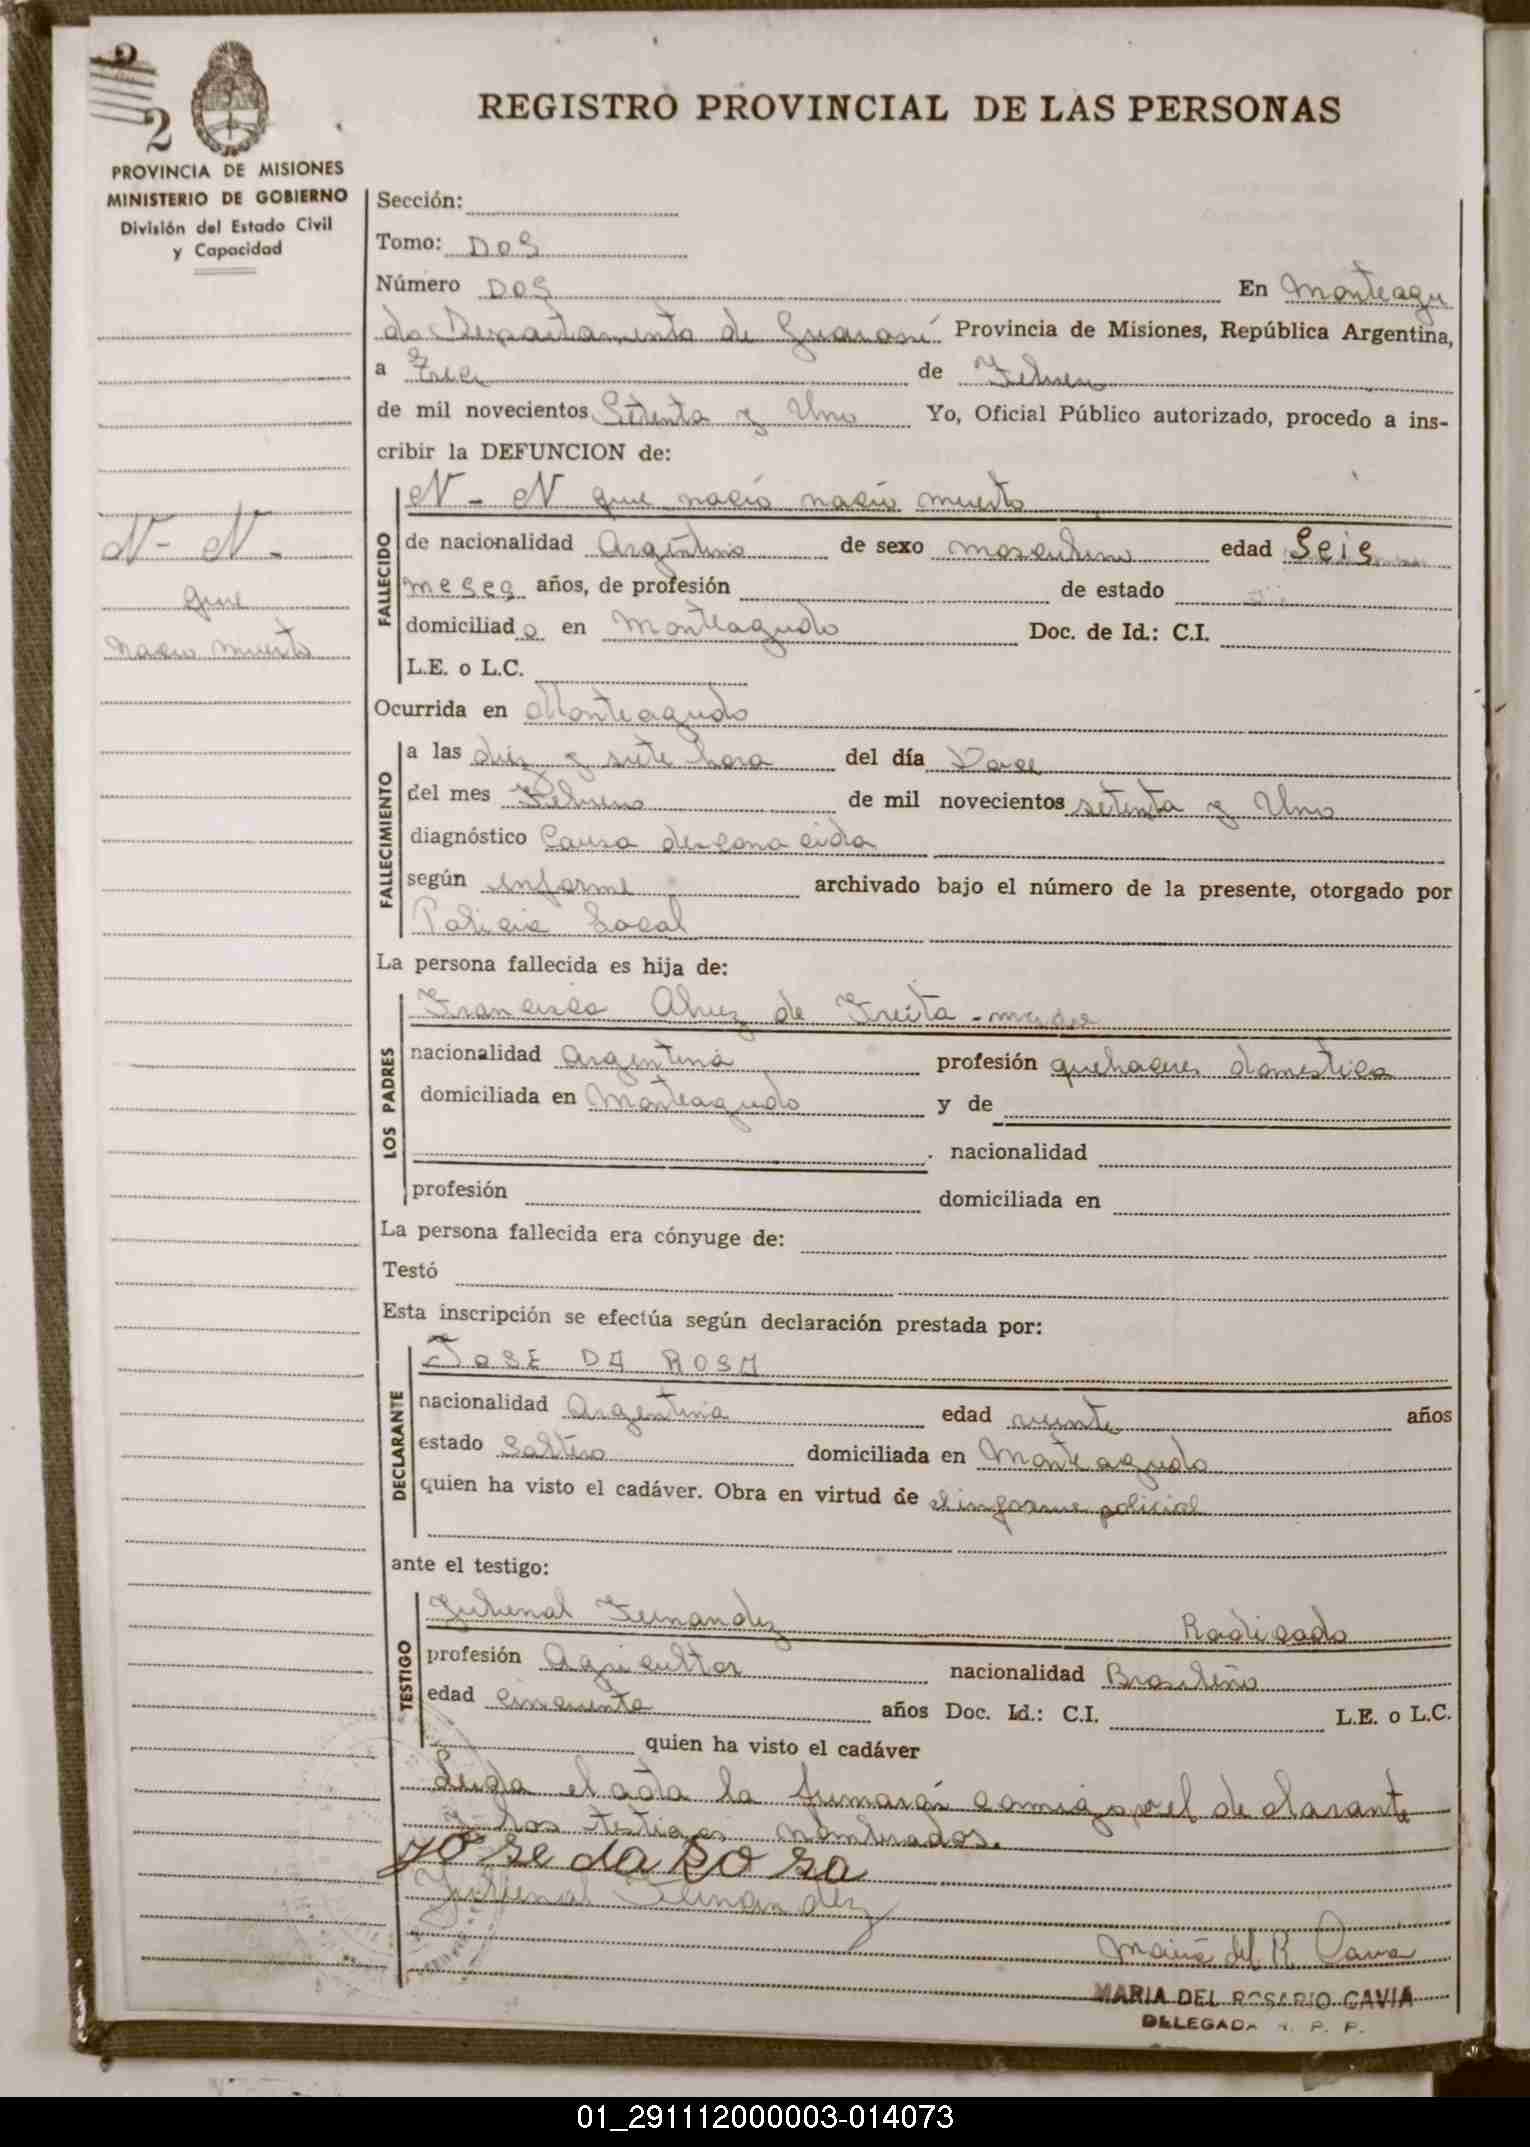 2
2
REGISTRO PROVINCIAL DE LAS PERSONAS
PROVINCIA DE MISIONES
MINISTERIO DE GOBIERNO
División del Estado Civil
y Capacidad
Sección:
Tomo: DOS
Número DOS En Monteagu
do Departamento de Guaraní Provincia de Misiones, República Argentina,
a Trece de Febrero
de mil novecientos Setenta y Uno Yo, Oficial Público autorizado, procedo a ins-
cribir la DEFUNCION de:
N - N que nació nació muerto
N - N -
que
nacio muerto
FALLECIDO
de nacionalidad Argentino de sexo masculino edad Seis
meses años, de profesión de estado
domiciliad o en Monteagudo Doc. de Id.: C.I.
L.E. o L.C.
Ocurrida en Monteagudo
FALLECIMIENTO
a las diez y siete hora del día Doce
del mes Febrero de mil novecientos setenta y Uno
diagnóstico Causa desconocida
según informe archivado bajo el número de la presente, otorgado por
Policia Local
La persona fallecida es hija de:
LOS PADRES
Francisca Alvez de Freita - madre
nacionalidad Argentina profesión quehaceres domestica
domiciliada en Monteagudo y de
. nacionalidad
profesión domiciliada en
La persona fallecida era cónyuge de:
Testó
Esta inscripción se efectúa según declaración prestada por:
DECLARANTE
JOSE DA ROSA
nacionalidad Argentina edad veinte años
estado Soltero domiciliada en Monteagudo
quien ha visto el cadáver. Obra en virtud de el informe policial
ante el testigo:
TESTIGO
Jubenal Fernandez Radicado
profesión Agricultor nacionalidad Brasileño
edad cincuenta años Doc. Id.: C.I. L.E. o L.C.
quien ha visto el cadáver
Leida el acta la firmarán comigo el declarante
y los testigos nombrados.
Jose da Rosa
Jubenal Fernandez
Maria del R. Cavia
MARIA DEL ROSARIO CAVIA
DELEGADA R. P. P.
01_291112000003-014073